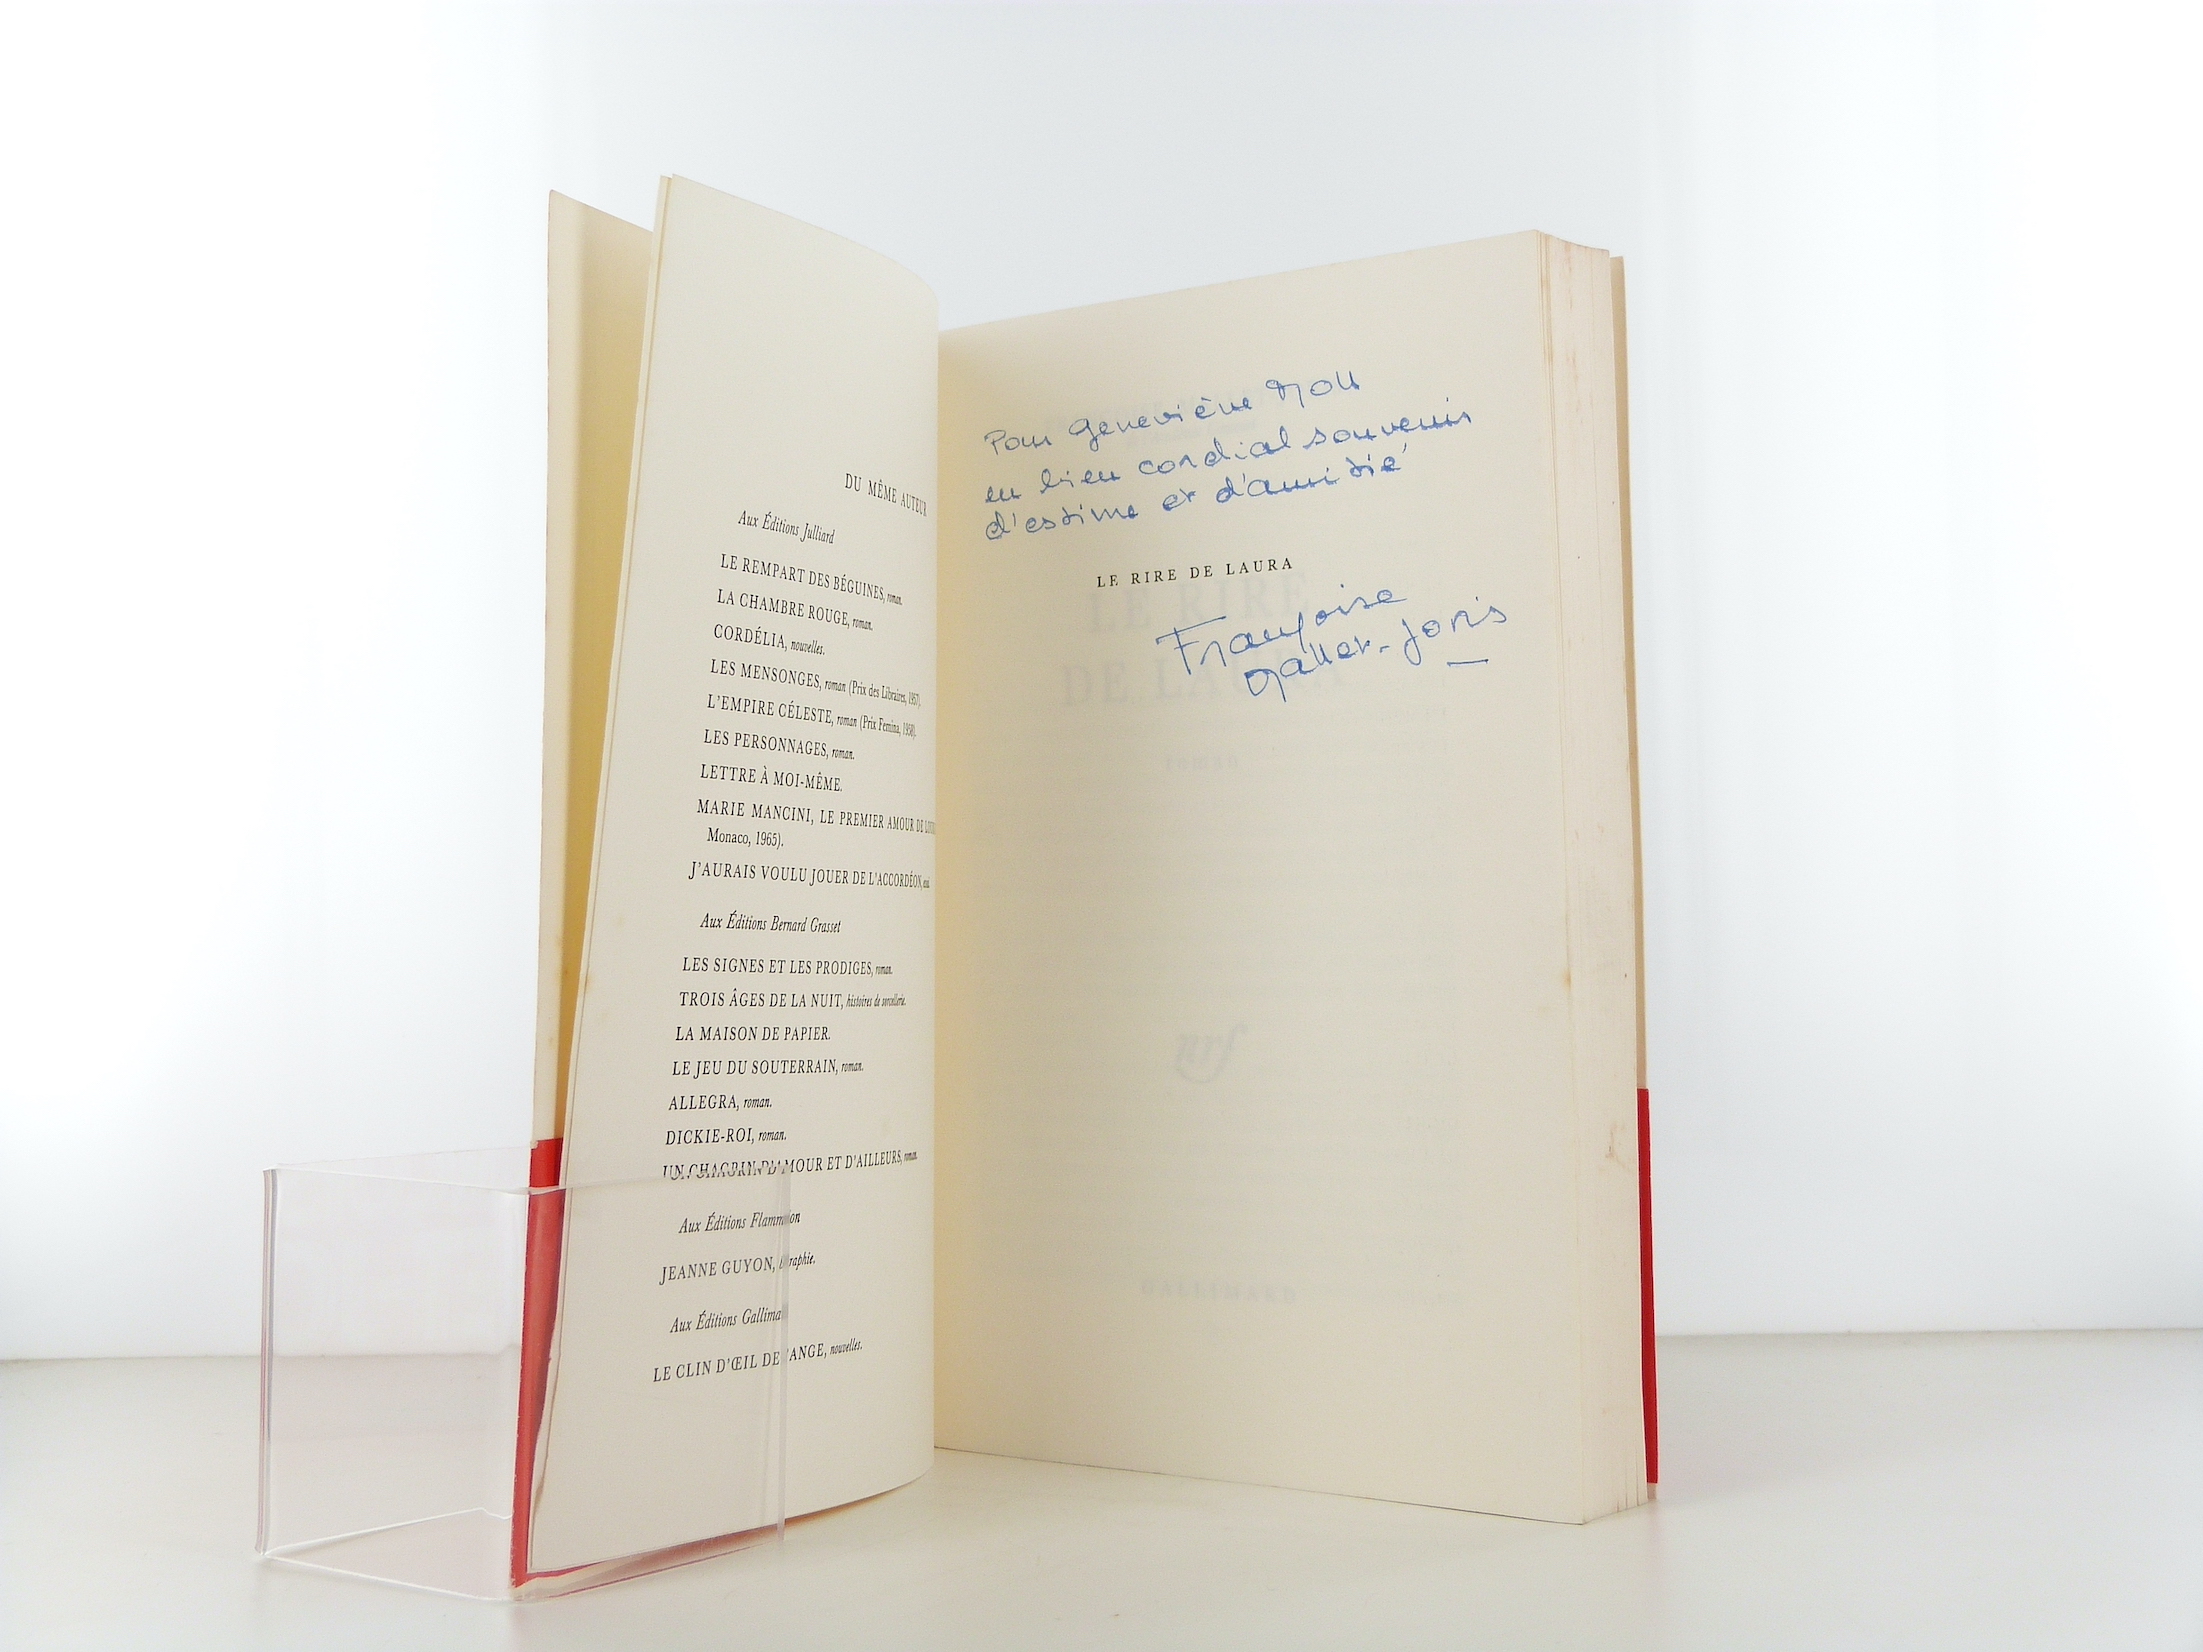 DU MÊME AUTEUR
Aux Éditions Julliard
LE REMPART DES BÉGUINES, roman.
LA CHAMBRE ROUGE, roman.
CORDÉLIA, nouvelles.
LES MENSONGES, roman (Prix des Libraires, 1957).
L'EMPIRE CÉLESTE, roman (Prix Femina, 1958).
LES PERSONNAGES, roman.
LETTRE À MOI-MÊME.
MARIE MANCINI, LE PREMIER AMOUR DE
Monaco, 1965).
J'AURAIS VOULU JOUER DE L'ACCORDÉON,
Aux Éditions Bernard Grasset
LES SIGNES ET LES PRODIGES, roman.
TROIS ÂGES DE LA NUIT, histoires de sorcellerie.
LA MAISON DE PAPIER.
LE JEU DU SOUTERRAIN, roman.
ALLEGRA, roman.
DICKIE-ROI, roman.
UN CHAGRIN D'AMOUR ET D'AILLEURS, roman.
Aux Éditions Flammarion
JEANNE GUYON, biographie.
Aux Éditions Gallimard
LE CLIN D'ŒIL DE L'ANGE, nouvelles.
Pour Geneviève Moll
en bien cordial souvenir
d'estime et d'amitié
LE RIRE DE LAURA
Françoise
Mallet-Joris
LE RIRE
DE LAURA
roman
nrf
GALLIMARD